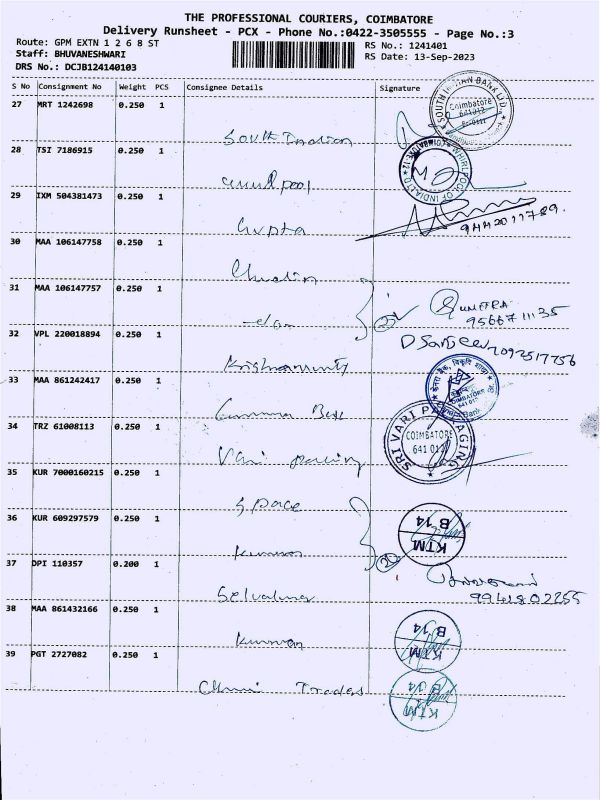 THE PROFESSIONAL COURIERS, COIMBATORE
Delivery Runsheet - PCX - Phone No.:0422-3505555 - Page No.:3
Route: GPM EXTN 1 2 6 8 ST
RS No.: 1241401
Staff: BHUVANESHWARI
RS Date: 13-Sep-2023
DRS No.: DCJB124140103
S No Consignment No Weight PCS Consignee Details Signature
27 MRT 1242698 0.250 1
SOUTH INDIAN BANK LTD. Coimbatore 641012
South Indian
28 TSI 7186915 0.250 1
WHIRLPOOL OF INDIA LTD COIMBATORE-12
29 IXM 504381473 0.250 1
Gupta
9442011789.
30 MAA 106147758 0.250 1
31 MAA 106147757 0.250 1
9566711135
-do-
32 VPL 220018894 0.250 1
7092517756
Krishnamurthy
33 MAA 861242417 0.250 1
COIMBATORE 641 012
34 TRZ 61008113 0.250 1
SRI VARI PACKAGING COIMBATORE 641 012
Vari
35 KUR 7000160215 0.250 1
Space
36 KUR 609297579 0.250 1
KTM B 14
37 DPI 110357 0.200 1
9941802255
38 MAA 861432166 0.250 1
KTM B 14
39 PGT 2727082 0.250 1
KTM B 14
Traders